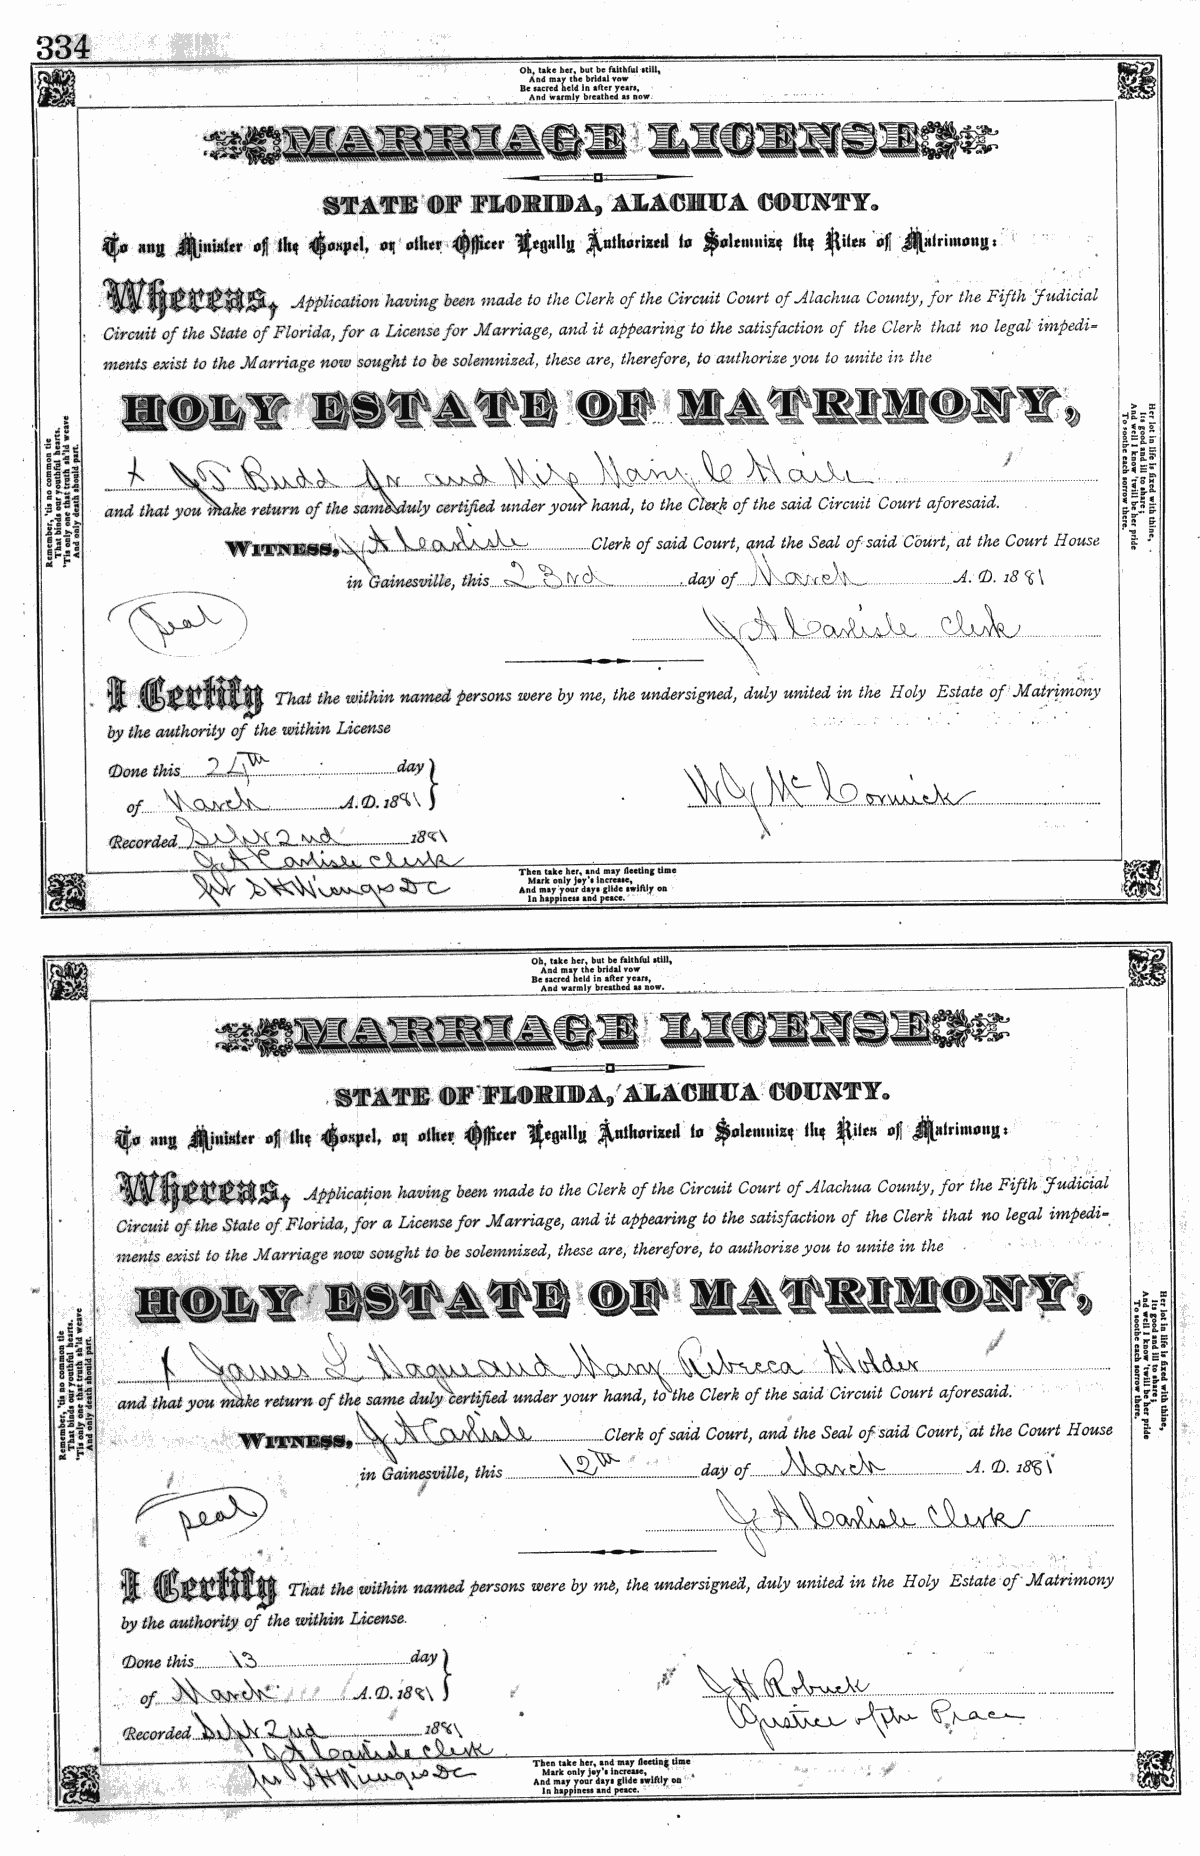 334
Oh, take her, but be faithful still,
And may the bridal vow
Be sacred held in after years,
And warmly breathed as now.
MARRIAGE LICENSE
STATE OF FLORIDA, ALACHUA COUNTY.
To any Minister of the Gospel, or other Officer Legally Authorized to Solemnize the Rites of Matrimony:
Whereas, Application having been made to the Clerk of the Circuit Court of Alachua County, for the Fifth Judicial
Circuit of the State of Florida, for a License for Marriage, and it appearing to the satisfaction of the Clerk that no legal impedi=
ments exist to the Marriage now sought to be solemnized, these are, therefore, to authorize you to unite in the
HOLY ESTATE OF MATRIMONY,
X J T Budd Jr and Miss Mary C Haile
and that you make return of the same duly certified under your hand, to the Clerk of the said Circuit Court aforesaid.
WITNESS, J A Carlisle Clerk of said Court, and the Seal of said Court, at the Court House
in Gainesville, this 23rd day of March A. D. 1881
Seal
J A Carlisle Clerk
I Certify That the within named persons were by me, the undersigned, duly united in the Holy Estate of Matrimony
by the authority of the within License
Done this 24th day
of March A.D. 1881
W J McCormick
Recorded Sept 2nd 1881
J A Carlisle Clerk
per S H Wienges DC
Remember, 'tis no common tie
That binds our youthful hearts,
'Tis only one that truth sh'ld weave
And only death should part.
Her lot in life is fixed with thine,
Its good and ill to share;
And well I know 'twill be her pride
To soothe each sorrow there.
Then take her, and may fleeting time
Mark only joy's increase,
And may your days glide swiftly on
In happiness and peace.
Oh, take her, but be faithful still,
And may the bridal vow
Be sacred held in after years,
And warmly breathed as now.
MARRIAGE LICENSE
STATE OF FLORIDA, ALACHUA COUNTY.
To any Minister of the Gospel, or other Officer Legally Authorized to Solemnize the Rites of Matrimony:
Whereas, Application having been made to the Clerk of the Circuit Court of Alachua County, for the Fifth Judicial
Circuit of the State of Florida, for a License for Marriage, and it appearing to the satisfaction of the Clerk that no legal impedi=
ments exist to the Marriage now sought to be solemnized, these are, therefore, to authorize you to unite in the
HOLY ESTATE OF MATRIMONY,
X James L Hague and Mary Rebecca Holder
and that you make return of the same duly certified under your hand, to the Clerk of the said Circuit Court aforesaid.
WITNESS, J A Carlisle Clerk of said Court, and the Seal of said Court, at the Court House
in Gainesville, this 12th day of March A. D. 1881
Seal
J A Carlisle Clerk
I Certify That the within named persons were by me, the undersigned, duly united in the Holy Estate of Matrimony
by the authority of the within License.
Done this 13 day
of March A.D. 1881
J H Robuck
Justice of the Peace
Recorded Sept 2nd 1881
J A Carlisle Clerk
per S H Wienges DC
Remember, 'tis no common tie
That binds our youthful hearts,
'Tis only one that truth sh'ld weave
And only death should part.
Her lot in life is fixed with thine,
Its good and ill to share;
And well I know 'twill be her pride
To soothe each sorrow there.
Then take her, and may fleeting time
Mark only joy's increase,
And may your days glide swiftly on
In happiness and peace.